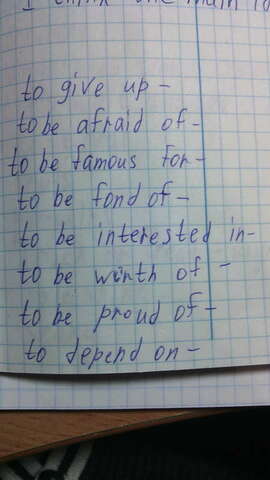 I think one main
to give up –
to be afraid of –
to be famous for –
to be fond of –
to be interested in –
to be worth of –
to be proud of –
to depend on –